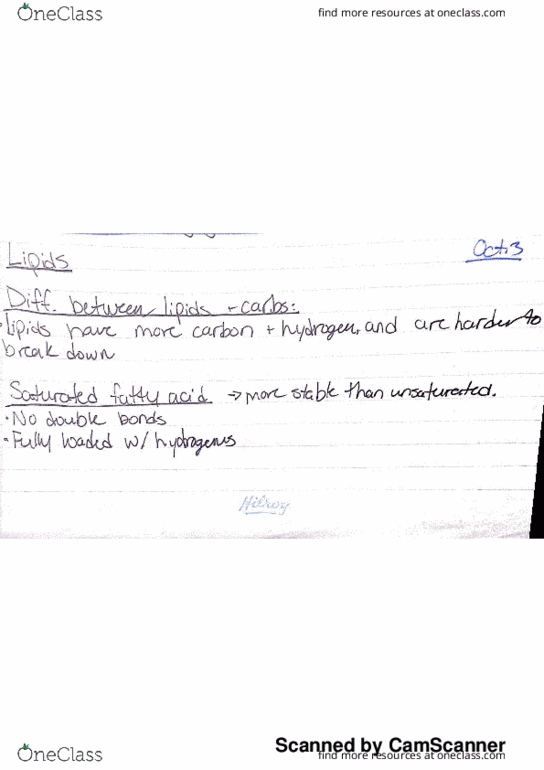 OneClass
find more resources at oneclass.com
Lipids
Oct.3
Diff. between lipids + carbs:
·Lipids have more carbon + hydrogen, and are harder to
break down
Saturated fatty acid → more stable than unsaturated.
·No double bonds
·Fully loaded w/ hydrogens
Hilroy
Scanned by CamScanner
OneClass
find more resources at oneclass.com